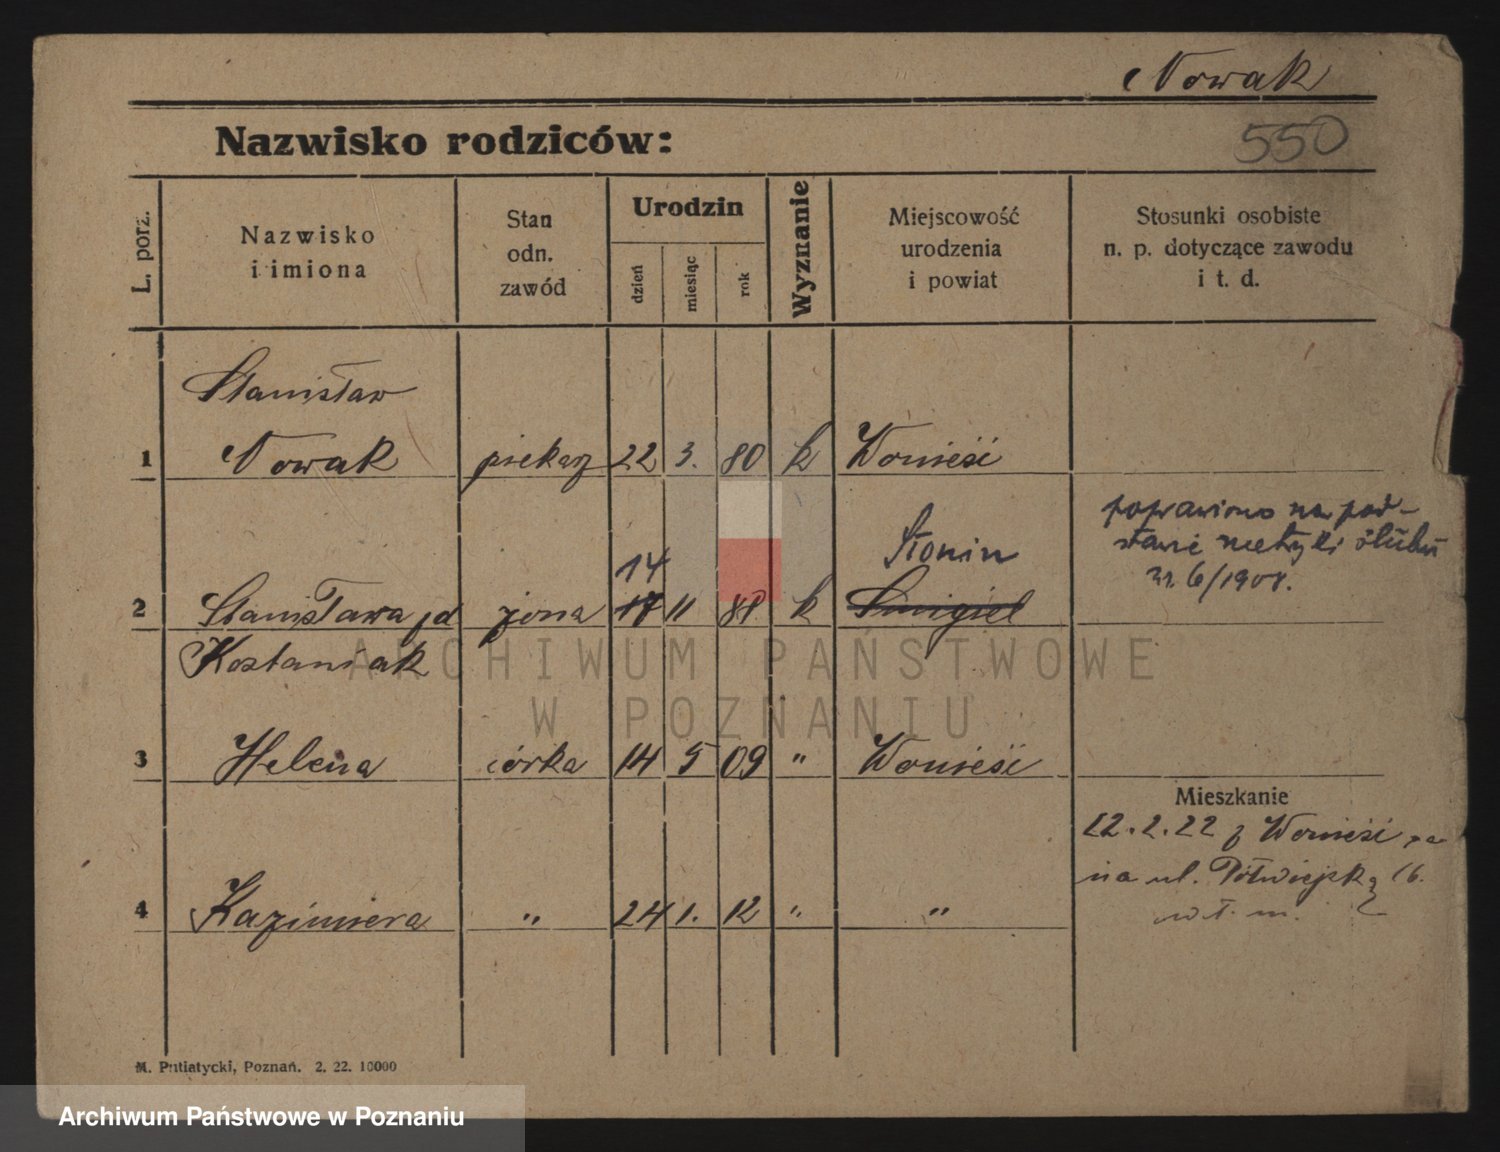 Nowak
Nazwisko rodziców:
550
L. porz.
Nazwisko
i imiona
Stan
odn.
zawód
Urodzin
dzień
miesiąc
rok
Wyznanie
Miejscowość
urodzenia
i powiat
Stosunki osobiste
n. p. dotyczące zawodu
i t. d.
Stanisław
1 Nowak piekarz 22 3. 80 k Wonieść
poprawiono na pod-
Słonin stawie metryki ślubu
14 nr. 6/1908.
2 Stanisława żona 17 11 88 k Śmigiel
Kostaniak
3 Helena córka 14 5 09 " Wonieść
Mieszkanie
22.2.22 z Wonieść
na ul. Półwiejską 16.
4 Kazimiera " 24 1. 12 " "
M. Putiatycki, Poznań. 2. 22. 10000
ARCHIWUM PAŃSTWOWE
W POZNANIU
Archiwum Państwowe w Poznaniu